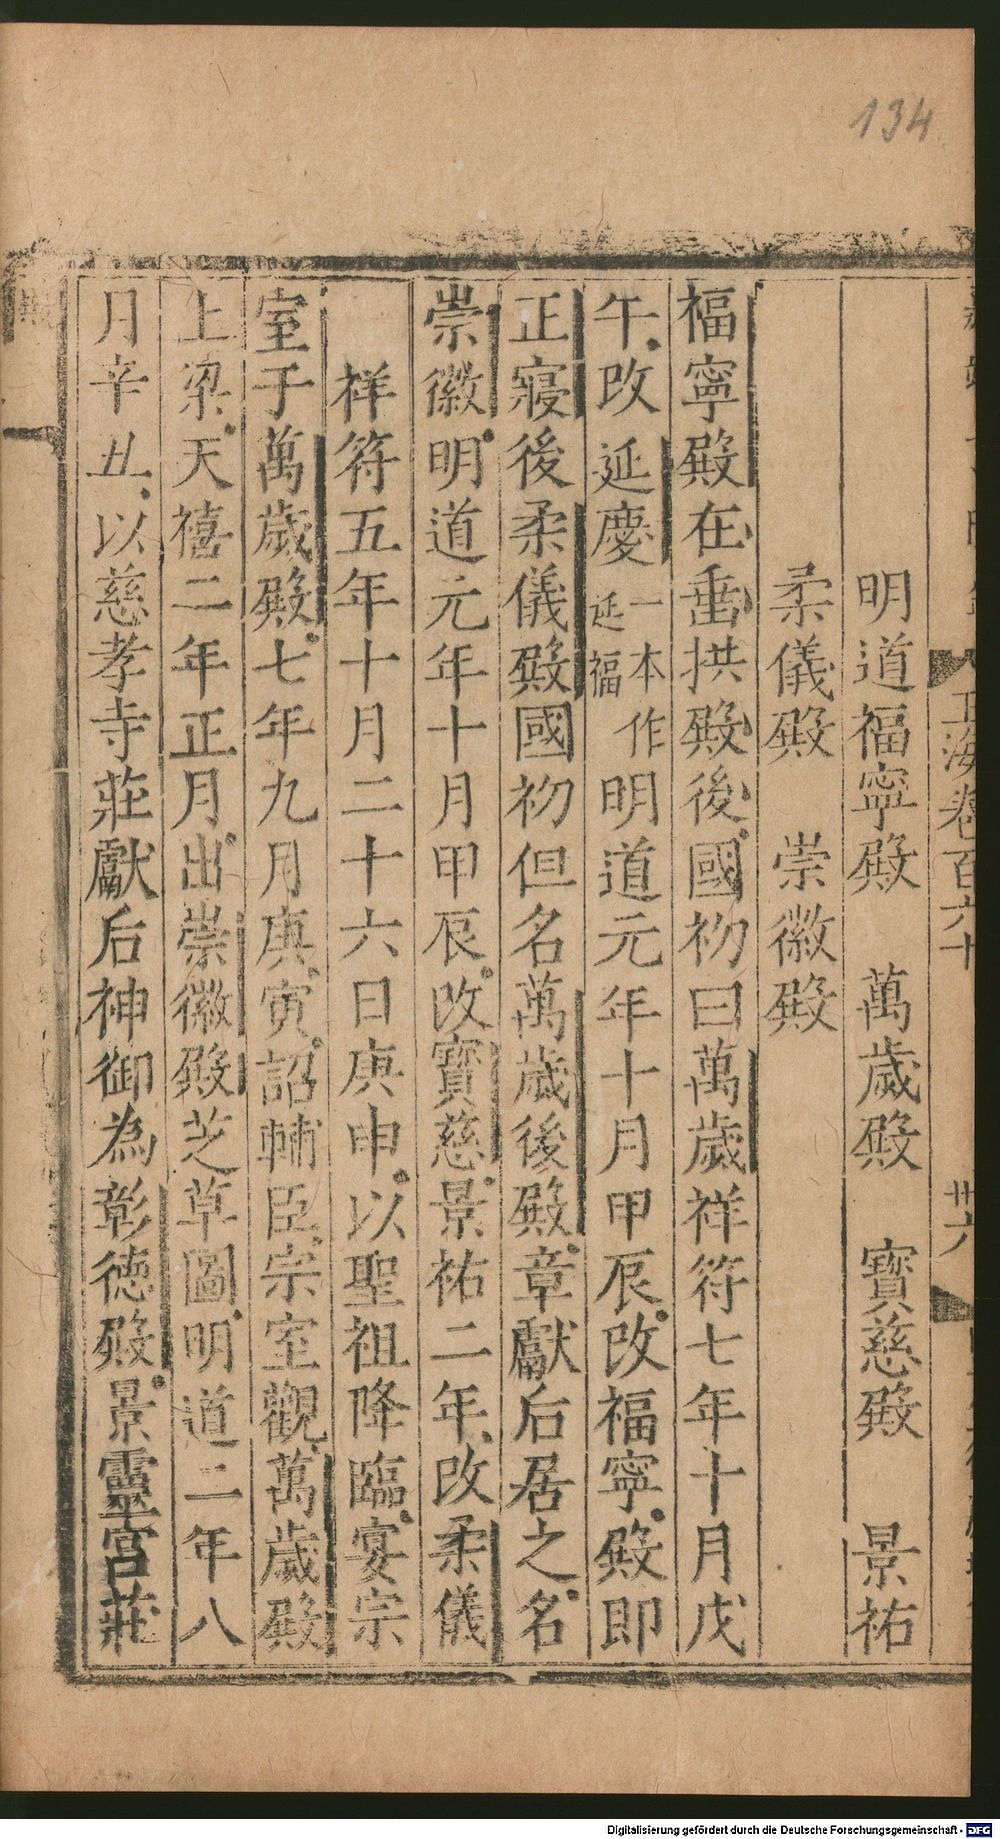 134
玉海卷百六十
卅六
明道福寧殿　萬歲殿　寶慈殿　景祐
柔儀殿　崇徽殿
福寧殿在垂拱殿後國初曰萬歲祥符七年十月戊
午改延慶一本作延福明道元年十月甲辰改福寧殿即
正寢後柔儀殿國初但名萬歲後殿章獻后居之名
崇徽明道元年十月甲辰改寶慈景祐二年改柔儀
祥符五年十月二十六日庚申以聖祖降臨宴宗
室子萬歲殿七年九月庚寅詔輔臣宗室觀萬歲殿
上梁天禧二年正月出崇徽殿芝草圖明道二年八
月辛丑以慈孝寺莊獻后神御為彰德殿景靈宮莊
Digitalisierung gefördert durch die Deutsche Forschungsgemeinschaft - DFG